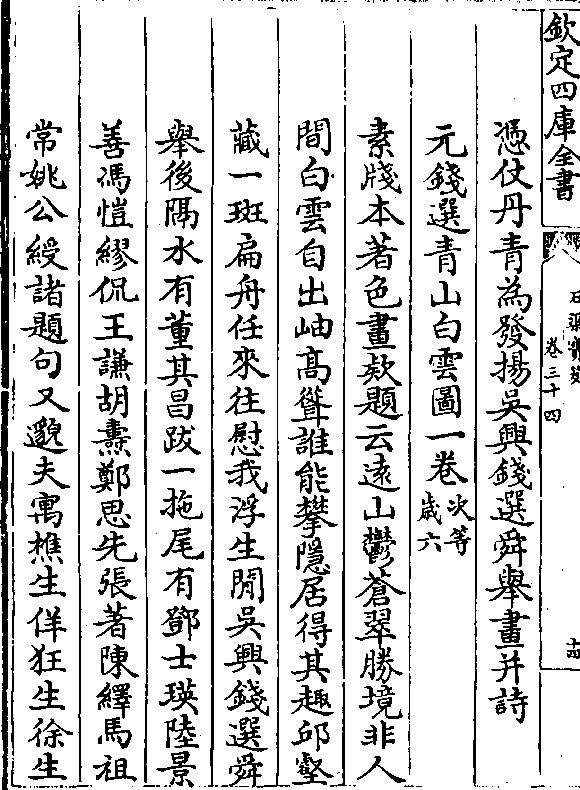 欽定四庫全書
石渠寶笈
卷三十四
憑仗丹青為發揚吳興錢選舜舉畫并詩
元錢選青山白雲圖一卷 次等 歲六
素牋本著色畫欵題云遠山鬱蒼翠勝境非人
間白雲自出岫髙聳誰能攀隱居得其趣邱壑
藏一斑扁舟任來往慰我浮生閒吳興錢選舜
舉後隔水有董其昌跋一拖尾有鄧士瑛陸景
善馮愷繆侃王謙胡燾鄭思先張著陳繹馬祖
常姚公綬諸題句又邈夫寓樵生佯狂生徐生